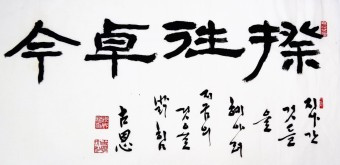 揆往卓今
지나간
것들
을
헤아려
지금의
것을
밝힘
古思